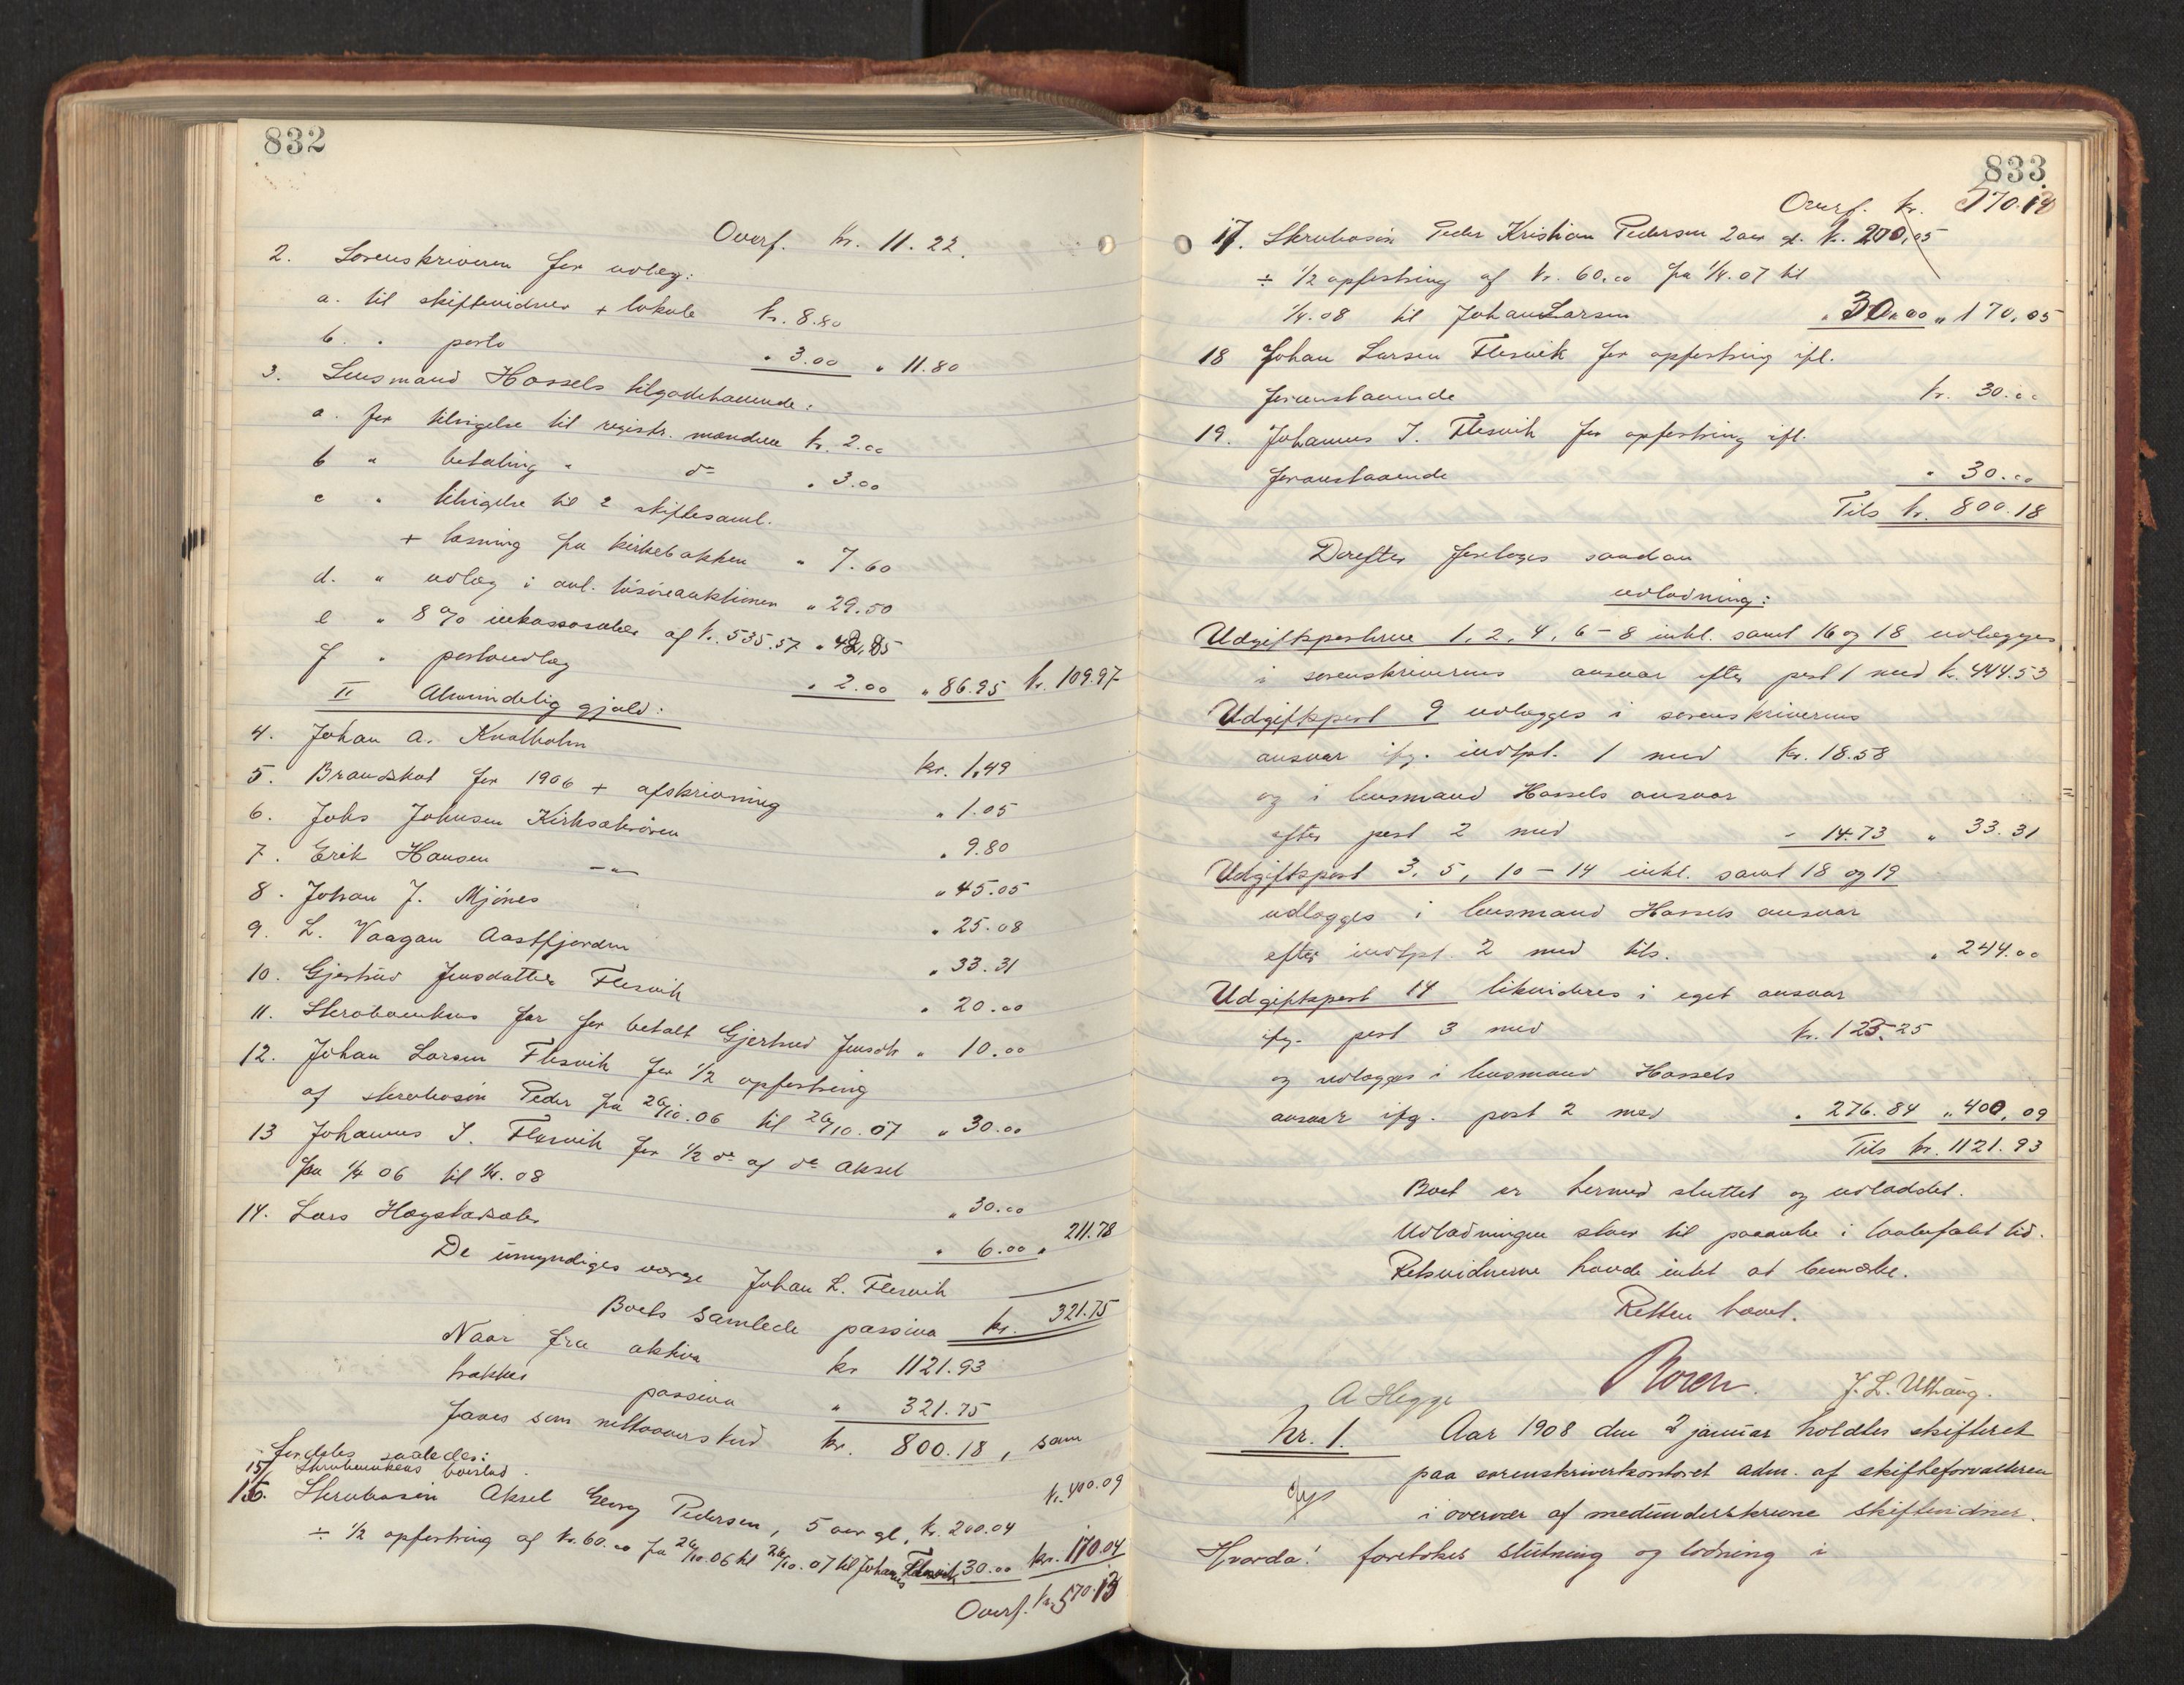 832
Overf. kr. 11.22.
2. Sorenskriveren for udlæg:
a. til skiftevidner + lokale kr. 8.80
b. " porto " 3.00 " 11.80
3. Lensmand Hassels tilgodehavende:
a. for tilsigelse til registr. mændene kr. 2.00
b " betaling " do " 3.00
c " tilsigelse til 2 skiftesaml.
+ læsning fra kirkebakken " 7.60
d. " udlæg i anl. løsøreauktionen " 29.50
e " 8 % inkassosalær af kr. 535.57 " 42.85
f " portoudlæg " 2.00 " 86.95 kr. 109.97
II Almindelig gjæld:
4. Johan A. Knalholm kr. 1,49
5. Brandskat for 1906 + afskrivning " 1.05
6. Johs Johnsen Kirksæterøren " 9.80
7. Erik Hansen — " — " 45.05
8. Johan J. Mjönes " 25.08
9. L. Vaagan Aastfjorden " 33.31
10. Gjertrud Jensdatter Flesvik " 20.00
11. Skrabænkens far for betalt Gjertrud Jensdtr " 10.00
12. Johan Larsen Flesvik for 1/2 opfostring
af skrabasøn Peder fra 26/10.06 til 26/10.07 " 30.00
13 Johannes J. Flesvik for 1/2 do af do Aksel
fra 1/4 06 til 1/4.08 " 30.00
14. Lars Hagstadsæter " 6.00 " 211.78
De umyndiges værge Johan L. Flesvik —
Boets samlede passiva kr. 321.75
Naar fra aktiva kr 1121.93
trækkes passiva " 321.75
faaes som nettooverskud kr. 800.18, som
fordeles saaledes:
15/ Skrabænkens boeslod kr. 400.09
16. Skrabasøn Aksel Georg Pedersen, 5 aar gl. kr. 200.04
÷ 1/2 opfostring af kr. 60.00 fra 26/10.06 til 26/10.07 til Johannes Flesvik 30.00 kr. 170.04
Overf. kr. 570.13
833
Overf. kr. 570.13
17. Skrabasøn Peder Kristian Pedersen 2 aar gl. kr. 200,05
÷ 1/2 opfostring af kr. 60.00 fra 1/4.07 til
1/4.08 til Johan Larsen " 30.00 " 170,05
18 Johan Larsen Flesvik for opfostring ifl.
foranstaaende kr. 30.00
19. Johannes J. Flesvik for opfostring ifl.
foranstaaende " 30.00
Tils kr. 800.18
Derefter foretoges saadan
udlodning:
Udgiftsposterne 1, 2, 4, 6 – 8 inkl. samt 16 og 18 udlægges
i sorenskriverens ansvar efter post 1 med kr. 444.53
Udgiftspost 9 udlægges i sorenskriverens
ansvar ifg. indtpt. 1 med kr. 18.58
og i lensmand Hassels ansvar
efter post 2 med " 14.73 " 33.31
Udgiftspost 3, 5, 10 – 14 inkl. samt 18 og 19
udlægges i lensmand Hassels ansvar
efter indtpt. 2 med tils. " 244.00
Udgiftspost 14 likvideres i eget ansvar
ifg. post 3 med kr. 123.25
og udlægges i lensmand Hassels
ansvar ifg. post 2 med " 276.84 " 400,09
Tils kr. 1121.93
Boet er hermed sluttet og udloddet.
Udlodningen staar til paaanke i lovbefalet tid.
Retsvidnerne havde intet at bemærke.
Retten hævet.
A Hegge Roren. J. L. Uthaug.
Nr. 1. Aar 1908 den 2 januar holdtes skifteret
paa sorenskriverkontoret adm. af skifteforvalteren
i overvær af medunderskrevne skiftevidner.
Hvorda! foretokes slutning og lodning i